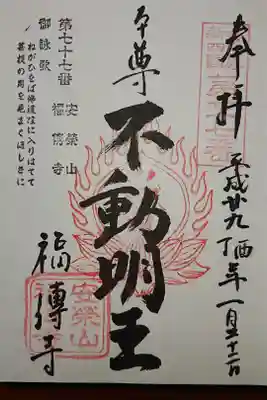 奉拝
平成廿九丁酉年一月三十一日
本尊
不動明王
第七十七番 安榮山
福傳寺
御詠歌
ねがひをば佛道塲に入りはてて
菩提の月を見まくほしさに
福傳寺
安榮山